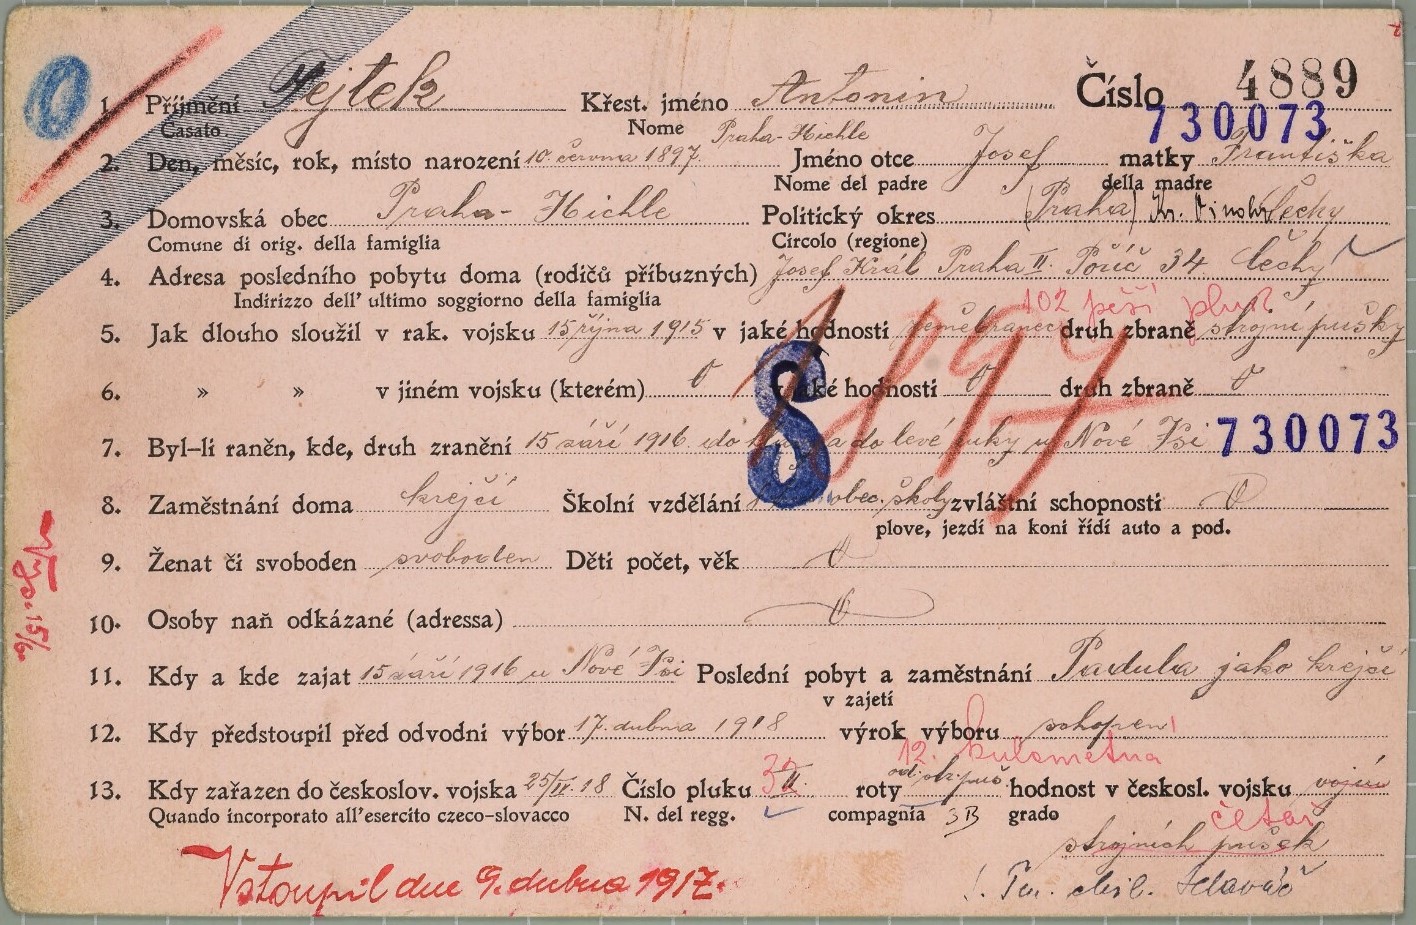 1. Příjmení Hejtek Křest. jméno Antonin Číslo 4889
Casato. Nome Praha-Hichle 730073
2. Den, měsíc, rok, místo narození 10 června 1897. Jméno otce Josef matky Františka
Nome del padre della madre
3. Domovská obec Praha-Hichle Politický okres (Praha) Kr. Vinohr Čechy
Comune di orig. della famiglia Circolo (regione)
4. Adresa posledního pobytu doma (rodičů příbuzných) Josef Král Praha II. Poříč 34 Čechy
Indirizzo dell' ultimo soggiorno della famiglia
102 pěší pluk
5. Jak dlouho sloužil v rak. vojsku 15 října 1915 v jaké hodnosti zeměbranec druh zbraně strojní pušky
1897
6. » » v jiném vojsku (kterém) 0 v jaké hodnosti 0 druh zbraně 0
8
7. Byl-li raněn, kde, druh zranění 15 září 1916. do a do levé ruky u Nové Vsi 730073
8. Zaměstnání doma krejčí Školní vzdělání obec. školy zvláštní schopnosti 0
plove, jezdí na koni řídí auto a pod.
9. Ženat či svoboden svoboden Děti počet, věk 0
10. Osoby naň odkázané (adressa) 0
11. Kdy a kde zajat 15 září 1916 u Nové Vsi Poslední pobyt a zaměstnání Padula jako krejčí
v zajetí
12. Kdy předstoupil před odvodní výbor 17. dubna 1918 výrok výboru schopen
12. kulometná
13. Kdy zařazen do českoslov. vojska 25/IV 18 Číslo pluku 32 roty od. str. puš hodnost v českosl. vojsku vojín
Quando incorporato all'esercito czeco-slovacco N. del regg. compagnia grado četař
strojních pušek
Vstoupil dne 9. dubna 1917.
Hlaváč